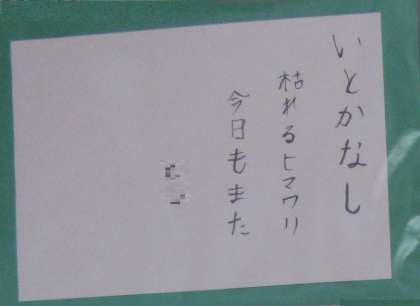 いとかなし
枯れるヒマワリ
今日もまた